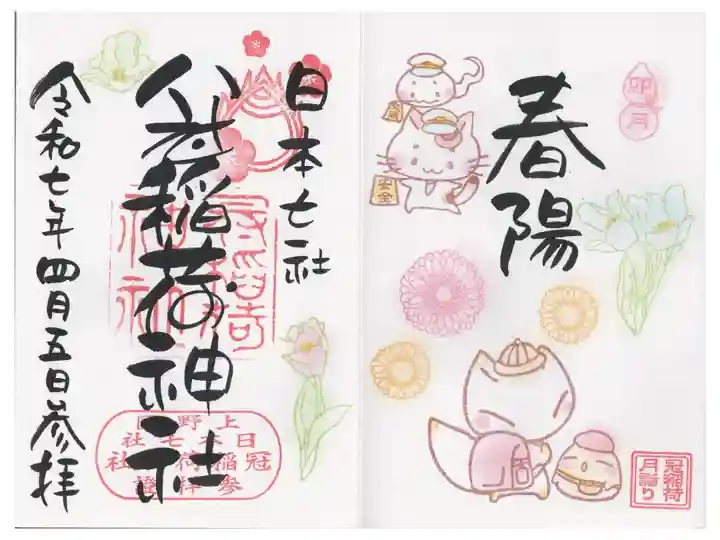 卯月
春陽
安全
冠稲荷
月詣り
日本七社
冠稲荷神社
令和七年四月五日参拝
上野国
日本七社
冠稲荷神社